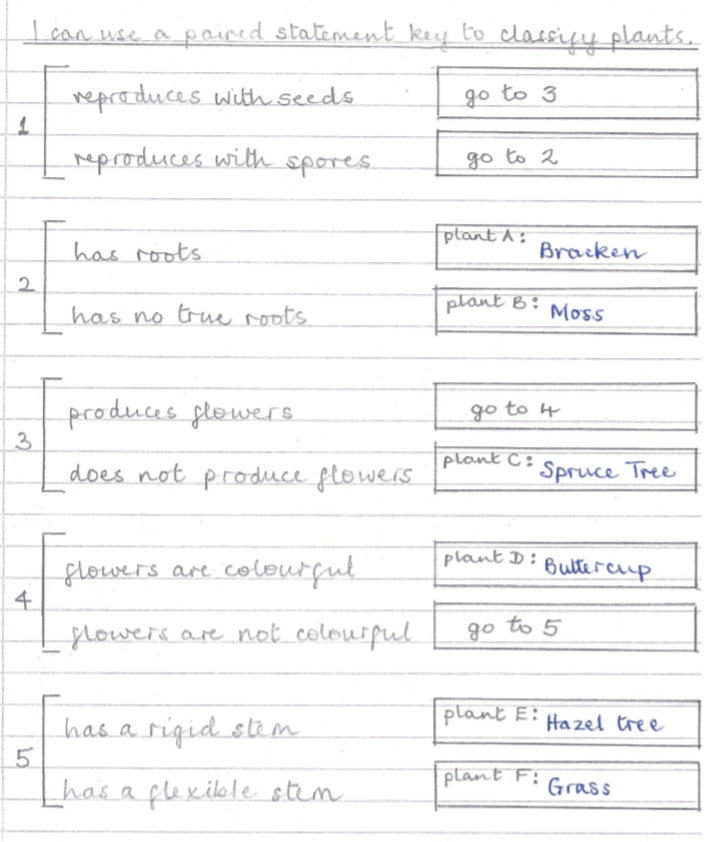 I can use a paired statement key to classify plants.
1
reproduces with seeds go to 3
reproduces with spores go to 2
2
has roots plant A: Bracken
has no true roots plant B: Moss
3
produces flowers go to 4
does not produce flowers plant C: Spruce Tree
4
flowers are colourful plant D: Buttercup
flowers are not colourful go to 5
5
has a rigid stem plant E: Hazel tree
has a flexible stem plant F: Grass